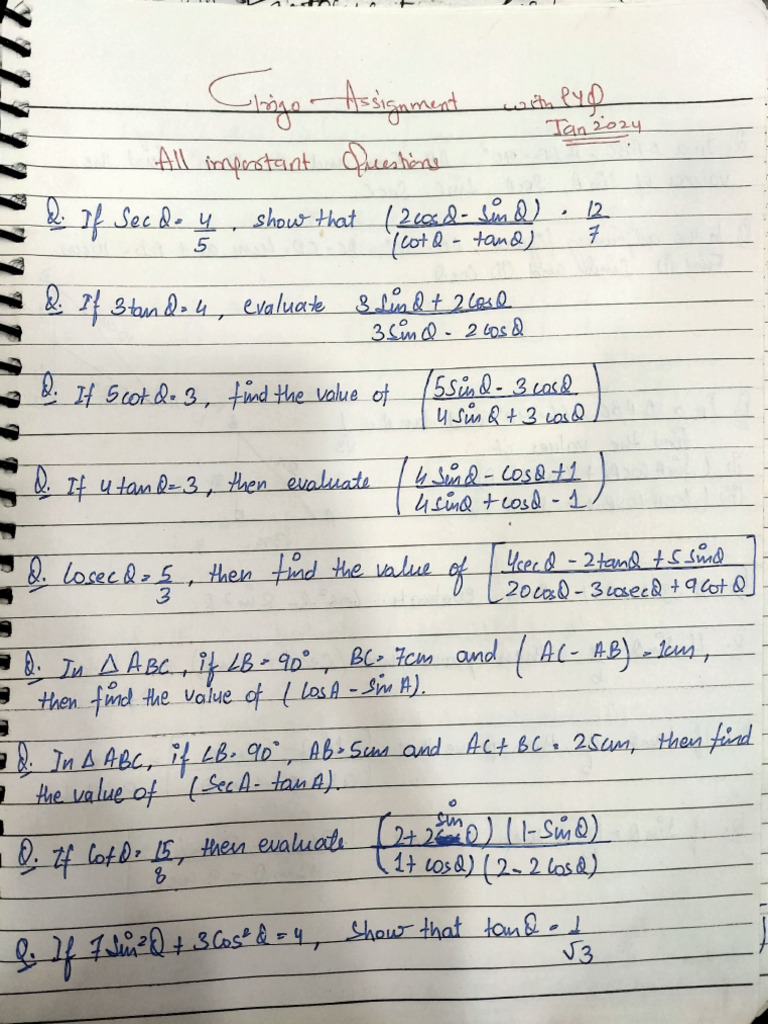 Trigo - Assignment with PYQ
Jan 2024
All important Questions
Q. If Sec θ = 4/5, show that (2cosθ - Sinθ)/(cotθ - tanθ) = 12/7
Q. If 3tanθ = 4, evaluate (3Sinθ + 2cosθ)/(3Sinθ - 2cosθ)
Q. If 5cotθ = 3, find the value of ((5Sinθ - 3cosθ)/(4Sinθ + 3cosθ))
Q. If 4tanθ = 3, then evaluate ((4Sinθ - cosθ + 1)/(4Sinθ + cosθ - 1))
Q. Cosecθ = 5/3, then find the value of [(4secθ - 2tanθ + 5Sinθ)/(20cosθ - 3cosecθ + 9Cotθ)]
Q. In Δ ABC, if ∠B = 90°, BC = 7cm and (AC - AB) = 1cm,
then find the value of (CosA - SinA).
Q. In Δ ABC, if ∠B = 90°, AB = 5cm and AC + BC = 25cm, then find
the value of (SecA - tanA).
Q. If Cotθ = 15/8, then evaluate (2 + 2sinθ)(1 - Sinθ)/(1 + cosθ)(2 - 2Cosθ)
Q. If 7Sin²θ + 3Cos²θ = 4, Show that tanθ = 1/√3